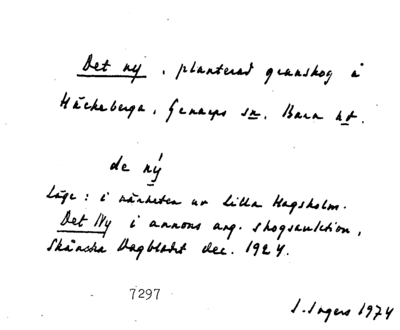 Det ny, planterad granskog å
Häckeberga, Genarps sn. Bara hd.
de ný
Läge: i närheten av Lilla Hagsholm.
Det Ny i annons ang. skogsauktion,
Skånska Dagbladet dec. 1924.
7297
I. Ingers 1974